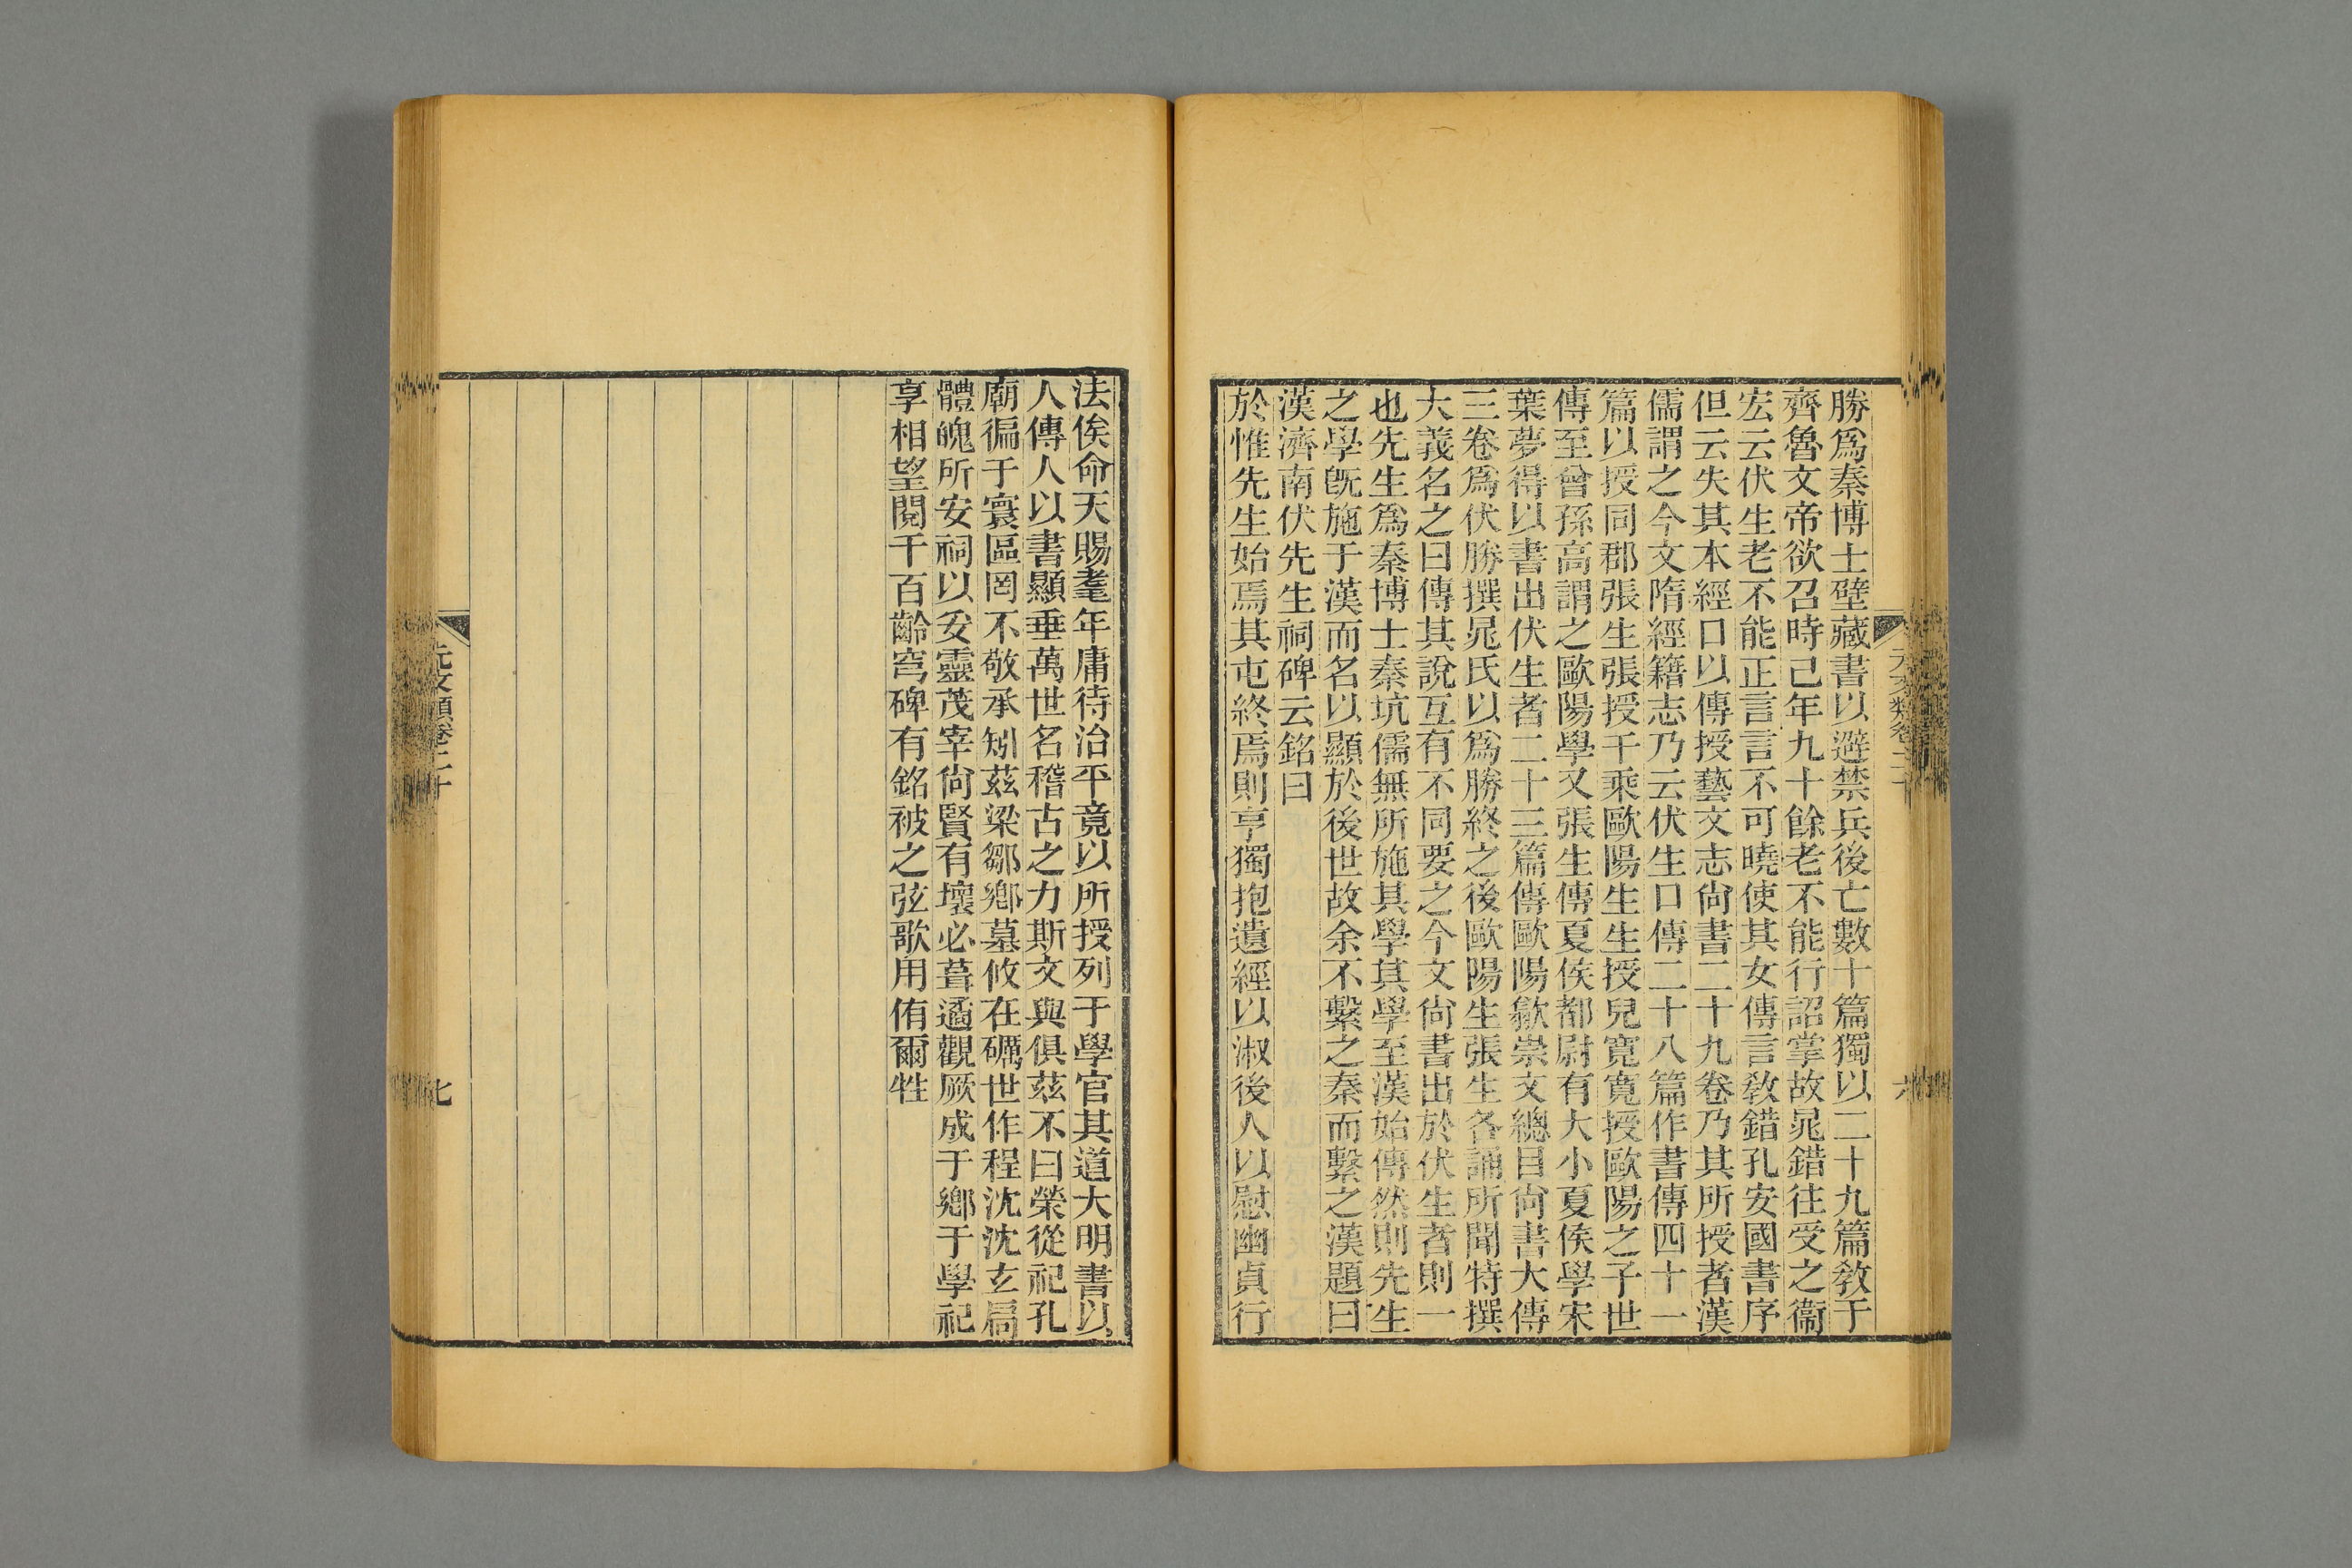 勝爲秦博士壁藏書以避禁兵後亡數十篇獨以二十九篇敎于
齊魯文帝欲召時已年九十餘老不能行詔掌故晁錯往受之衞
宏云伏生老不能正言言不可曉使其女傳言敎錯孔安國書序
但云失其本經口以傳授藝文志尙書二十九卷乃其所授者漢
儒謂之今文隋經籍志乃云伏生口傳二十八篇作書傳四十一
篇以授同郡張生張授千乘歐陽生生授兒寬寬授歐陽之子世
傳至曾孫高謂之歐陽學又張生傳夏侯都尉有大小夏侯學宋
葉夢得以書出伏生者二十三篇傳歐陽歙崇文總目尙書大傳
三卷爲伏勝撰晁氏以爲勝終之後歐陽生張生各誦所聞特撰
大義名之曰傳其說互有不同要之今文尙書出於伏生者則一
也先生爲秦博士秦坑儒無所施其學其學至漢始傳然則先生
之學旣施于漢而名以顯於後世故余不繫之秦而繫之漢題曰
漢濟南伏先生祠碑云銘曰
於惟先生始焉其屯終焉則亨獨抱遺經以淑後人以慰幽貞行
元文類卷二十
六
法俟命天賜耄年庸待治平竟以所授列于學官其道大明書以
人傳人以書顯垂萬世名稽古之力斯文與俱茲不曰榮從祀孔
廟徧于寰區罔不敬承矧茲梁鄒鄉墓攸在礪世作程沈沈玄扃
體魄所安祠以妥靈茂宰尙賢有壞必葺遹觀厥成于鄉于學祀
享相望閱千百齡穹碑有銘被之弦歌用侑爾牲
元文類卷二十
七